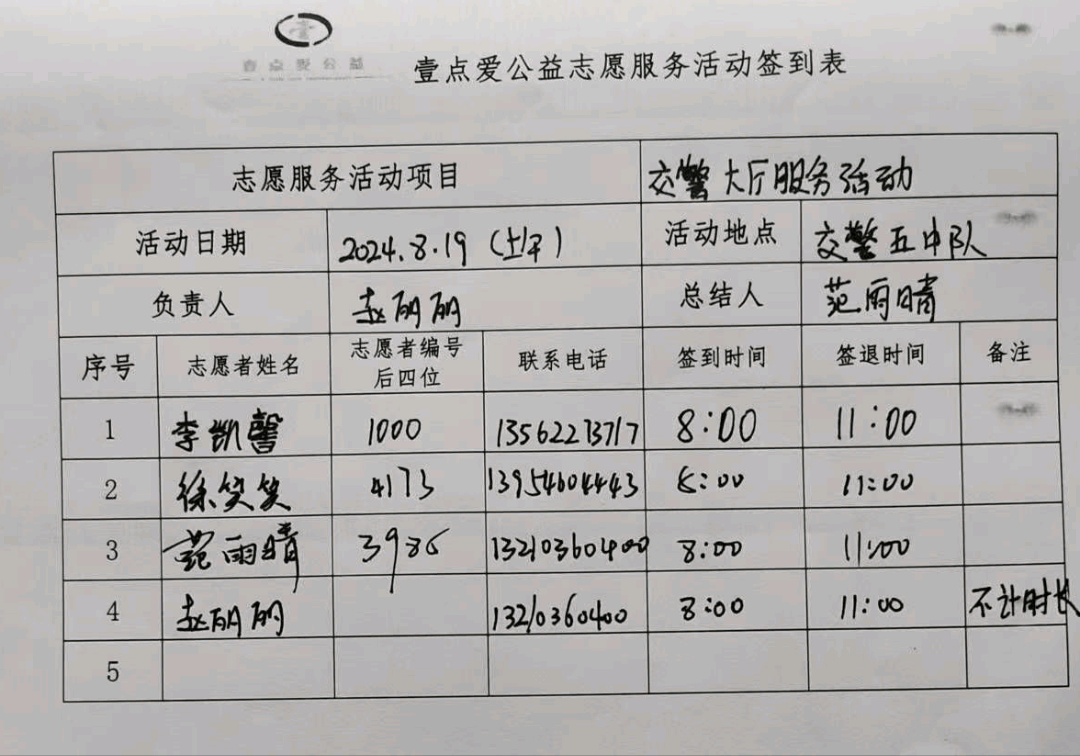 壹点爱公益
壹点爱公益志愿服务活动签到表
志愿服务活动项目 交警大厅服务活动
活动日期 2024.8.19 (上午) 活动地点 交警五中队
负责人 赵丽丽 总结人 范雨晴
序号 志愿者姓名 志愿者编号后四位 联系电话 签到时间 签退时间 备注
1 李凯馨 1000 13562213717 8:00 11:00
2 徐笑笑 4173 13954604443 8:00 11:00
3 范雨晴 3986 13210360400 8:00 11:00
4 赵丽丽 13210360400 8:00 11:00 不计时长
5